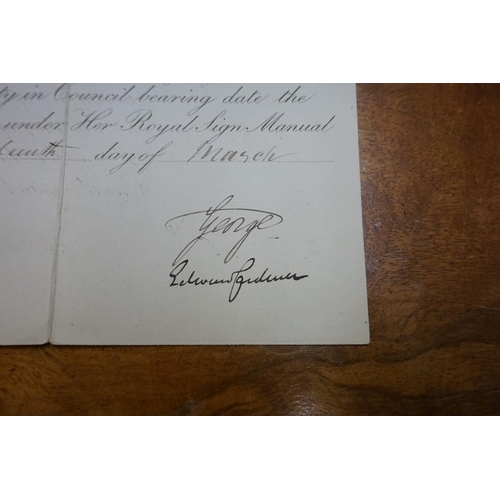 ty in Council bearing date the
under Her Royal Sign Manual
day of March
George
Edward